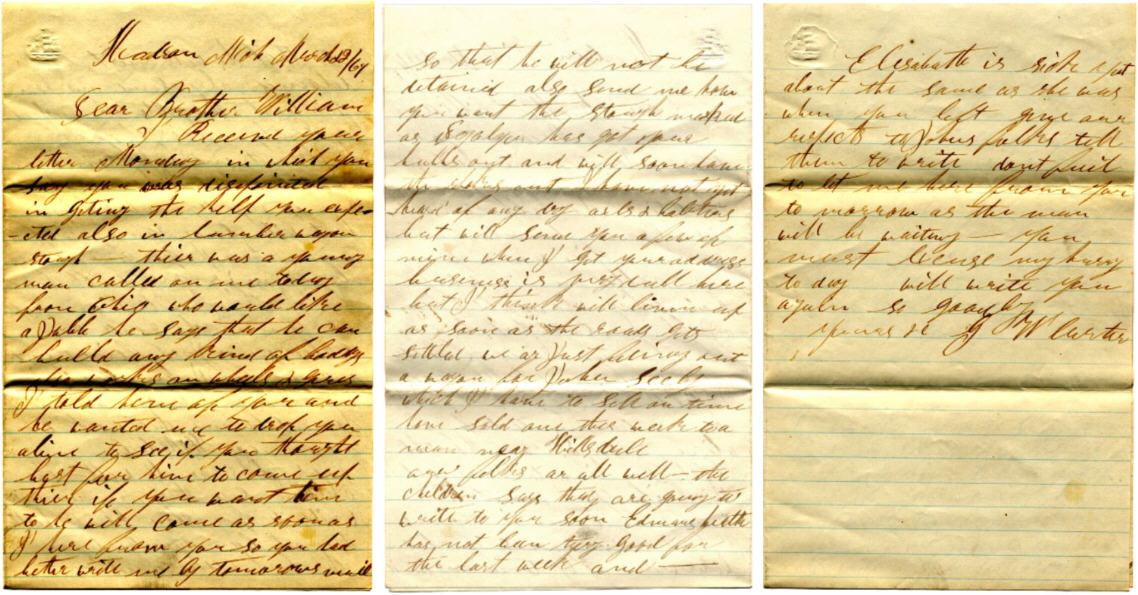 Hudson Mich March 23/64
Dear Brother William
I Received your
letter Monday in which you
say you was disapointed
in geting the help you expe-
cted also in lumber wagon
stough - thier was a young
man called on me today
from Ohio who would like
a Jobb he says that he can
build any kind of boddy
works on wheels & gares
I told him of you and
he wanted me to drop you
a line to see if you thought
best for him to come up
thier if you want him
to he will come as soon as
I here from you so you had
better write me by tomorows mail
so that he will not be
detained also send me how
you want the stough marked
as has got your
hubbs out and will soon have
the out I have not yet
heard of any dry
but will send you a few of
mine when I get your address
business is prety dull here
but I think will liven up
as soon as the roads gets
settled we ar Just fixing out
a wagon for John
which I have to sell on time
have sold one this week to a
man near Hillsdale
our folks ar all well - the
children says they are going to
write to you soon health
has not ben very good for
the last week and
Elisabeth is sick abut
about the same as she was
when you left give our
respects to Johns folks tell
them to write dont fail
to let me here from you
to morrow as the man
will be waiting - you
must excuse my hurry
to day will write you
again so goodby
yours &c J W Carter